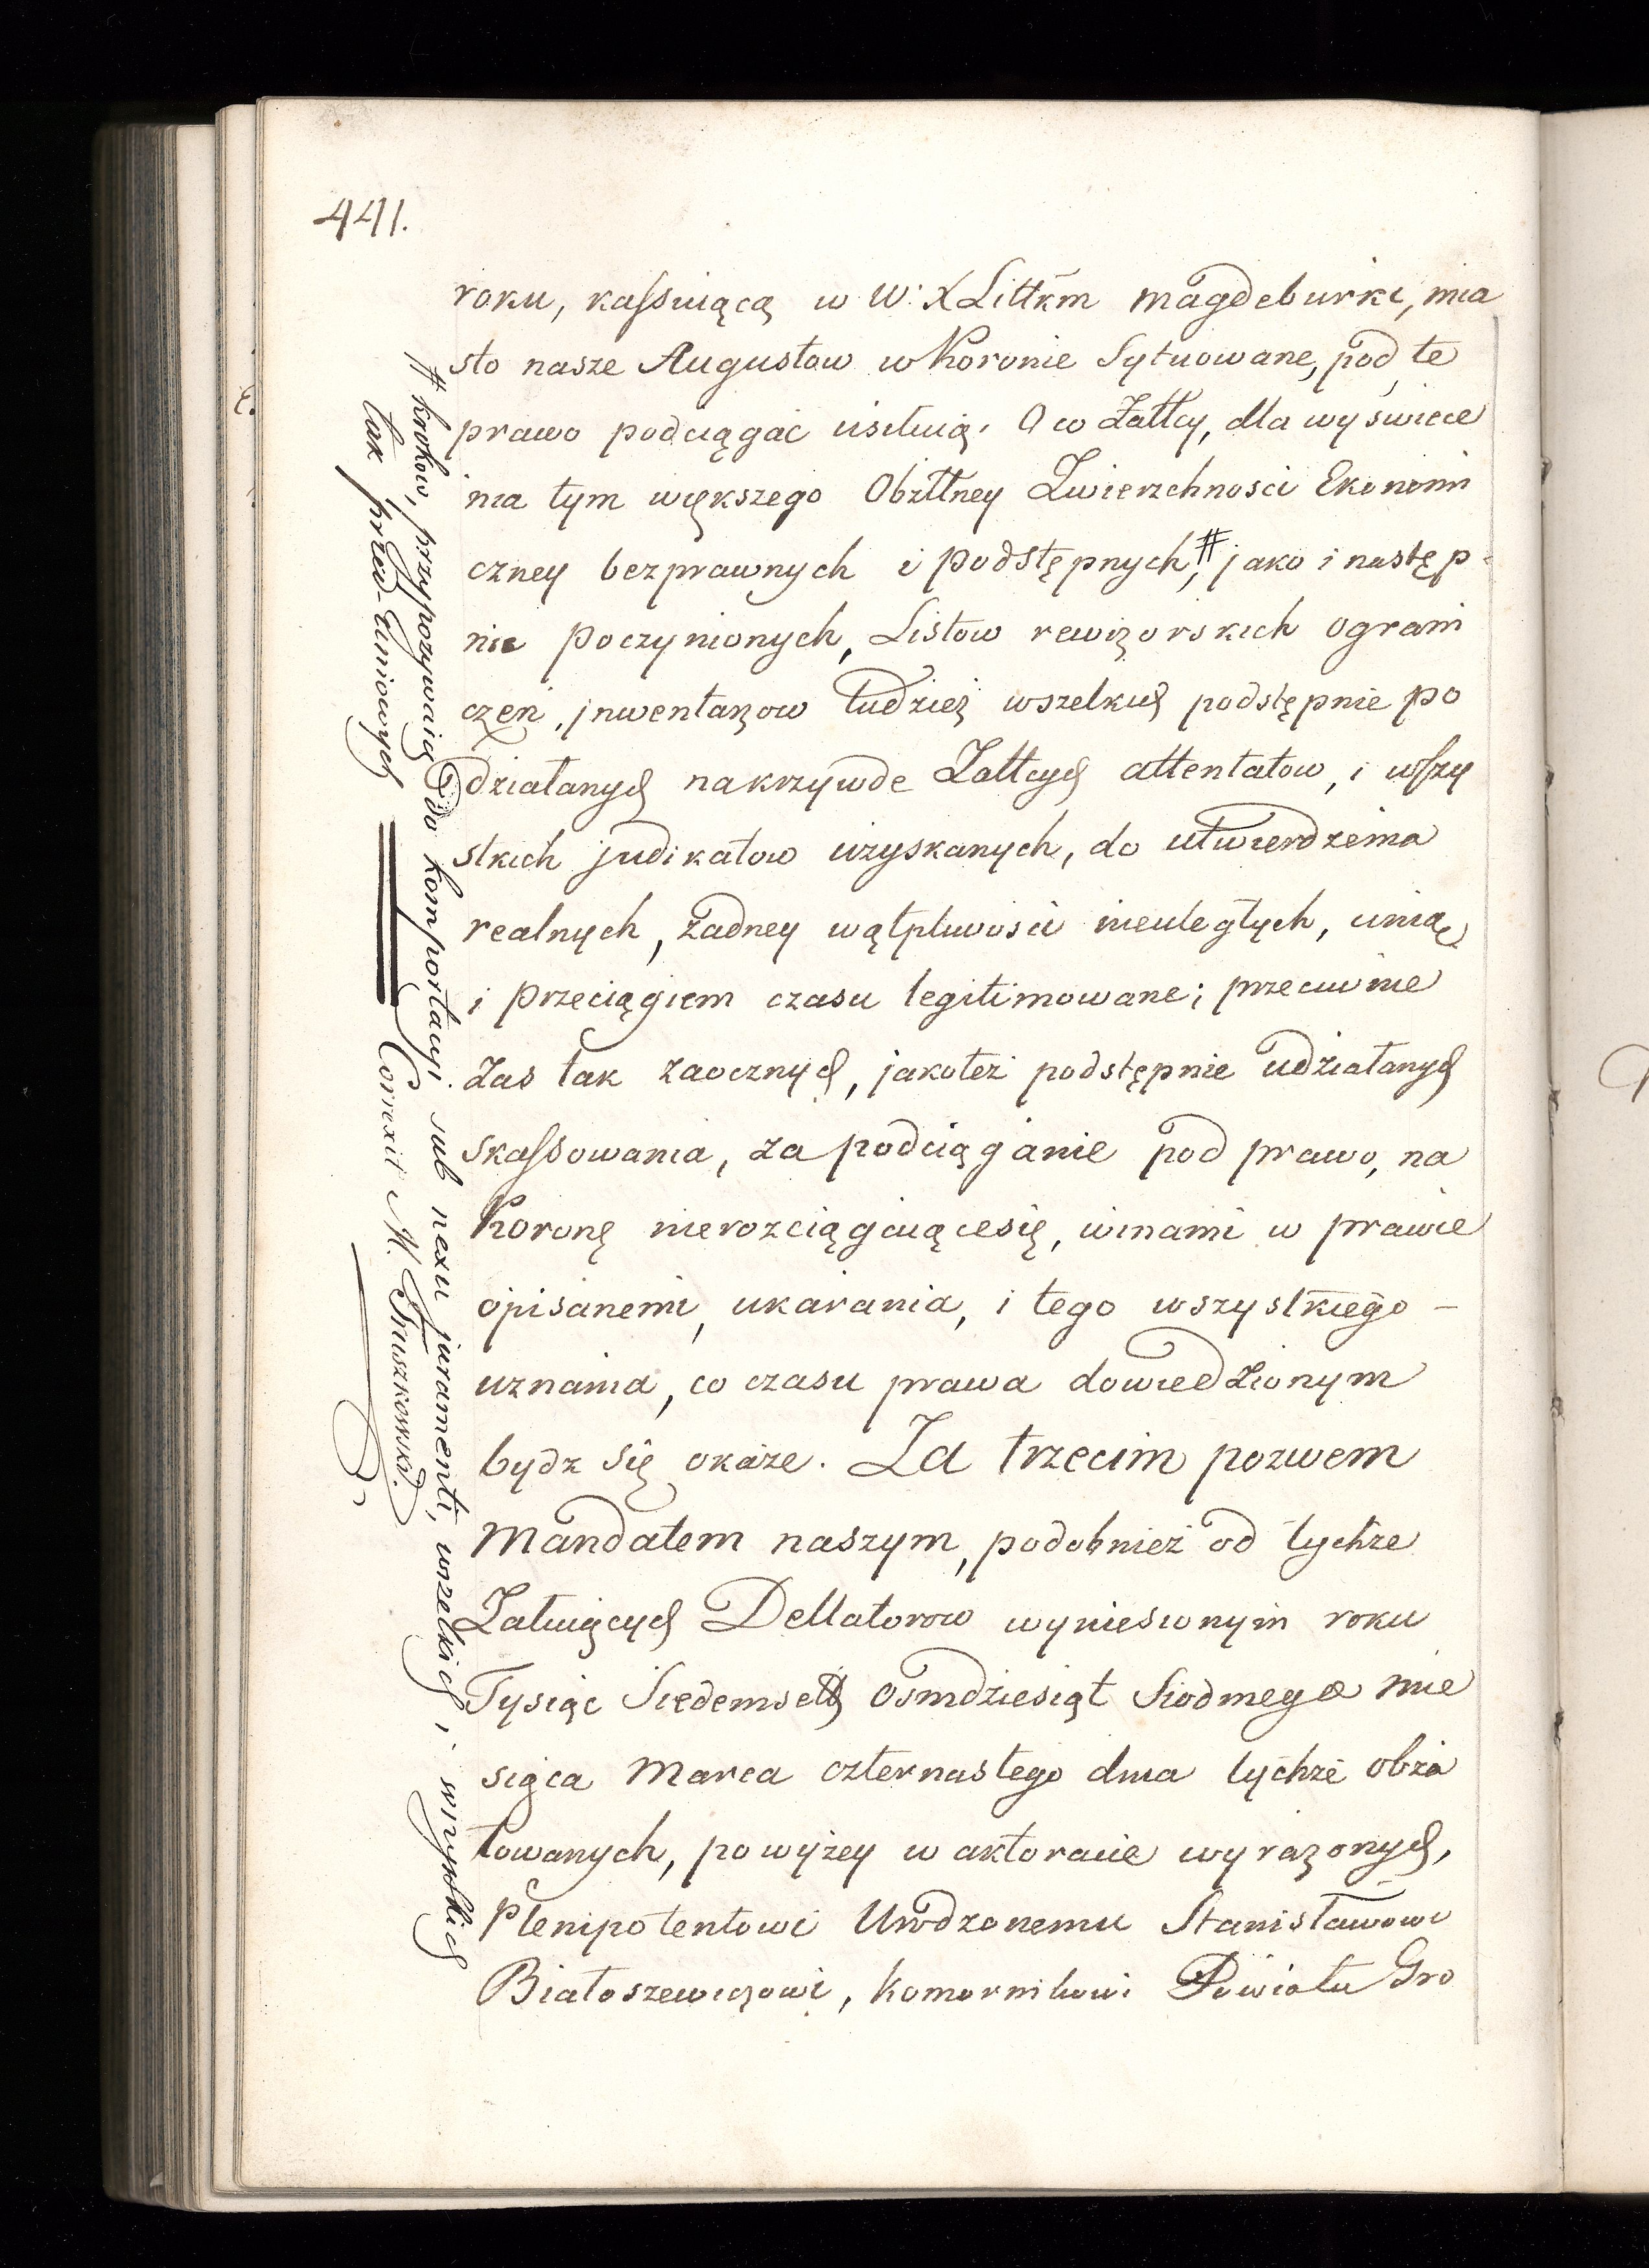 441.
roku, kassuiącą w W: X Littkm magdeburie, mia
sto nasze Augustow w Koronie Sytuowane, pod te
prawo podciągać usiłuią. O co Załłcy, dla wyswiece
nia tym większego Obżłłney Zwierzchności Ekonomi
czney bezprawnych i podstępnych,# jako i następ-
nie poczynionych, Listow rewizorskich ograni
czeń, jnwentarzow tudzież wszelkich podstępnie po
działanych na krzywde Żałłcych attentatow, i wszy
stkich judikatow uzyskanych, do utwierdzenia
realnych, żadney wątpliwości nieuległych, unią
i przeciągiem czasu legitimowane; przeciwnie
zas tak zaocznych, jakoteż podstępnie udziałanych
skassowania, za podciąganie pod prawo, na
Koronę nierozciągaiącesię, winami w prawie
opisanemi, ukarania, i tego wszystkiego –
uznania, co czasu prawa dowiedzionym
bydz się okaże. Za trzecim pozwem
Mandatem naszym, podobnież od tychże
Załuiących Dellatorow wyniesionym roku
Tysiąc Siedemset osmdziesiąt Siodmego mie
siąca Marca czternastego dnia tychże obża
łowanych, powyżey w aktoracie wyrażonych,
Plenipotentowi Urodzonemu Stanisławowi
Białoszewiczowi, Komornikowi Powiatu Gro
# krokow, przypozywaiąc do komportacyi sub nexu juramenti, wszelkich i wszystkich
tak przed-Uniowych
Correxit M. Truszkowski.